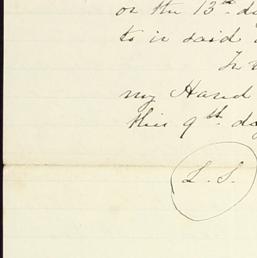 on the 13th d
to in said
In
my Hand
this 9th day
L.S.